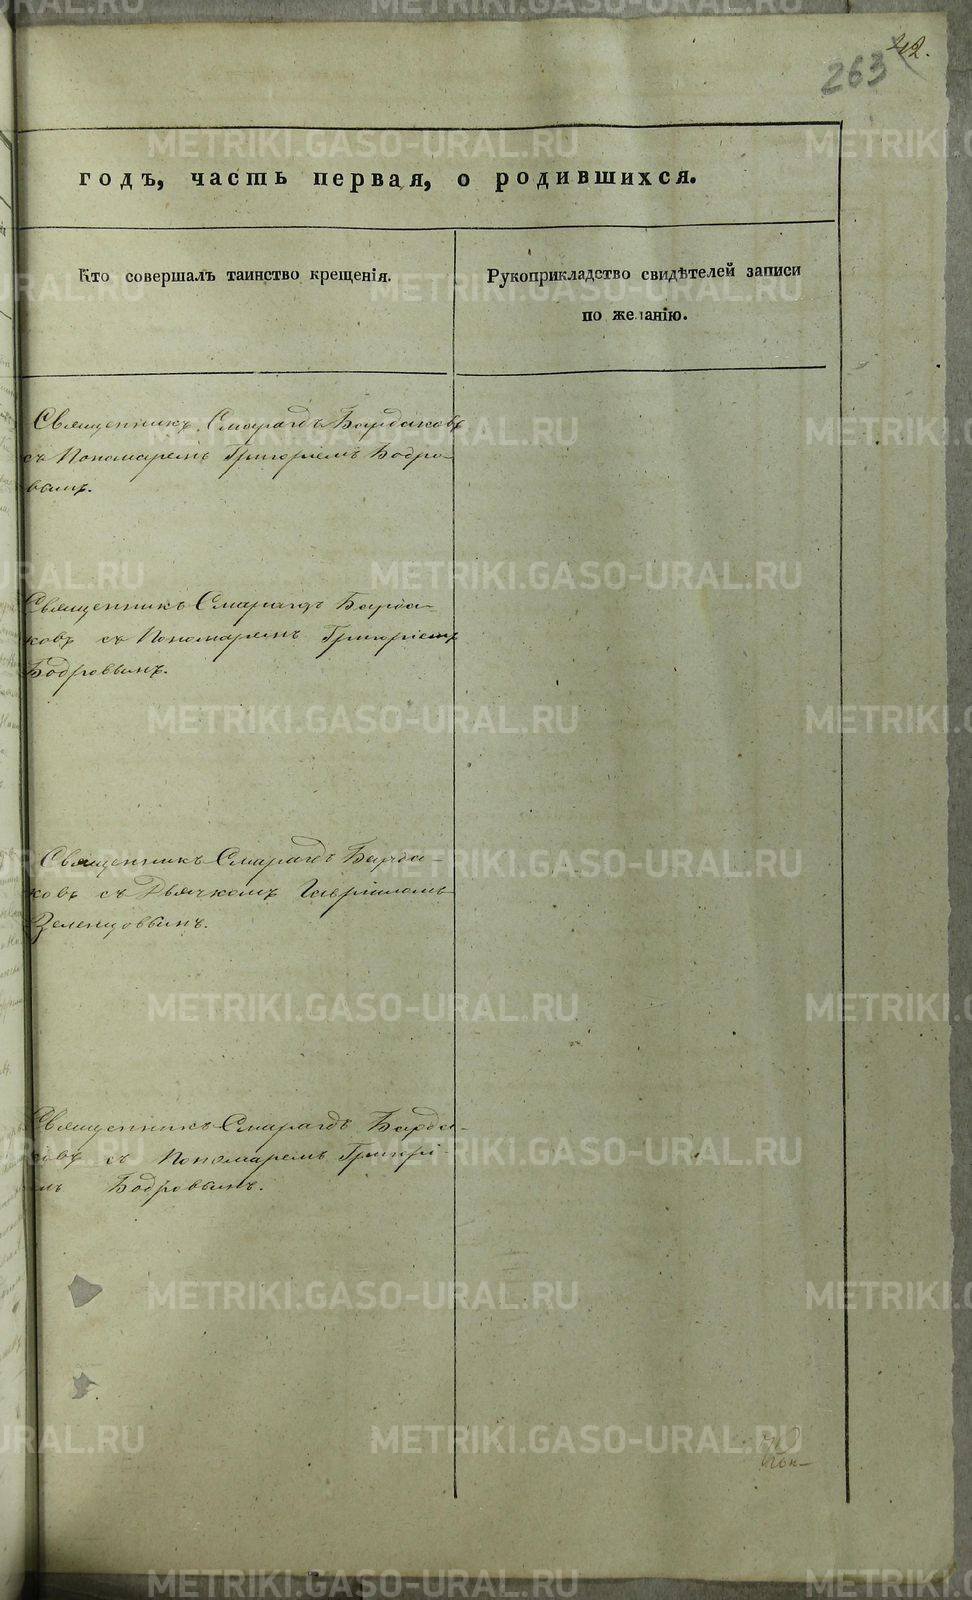 42.
263
годъ, часть первая, о родившихся.
Кто совершалъ таинство крещенія.
Рукоприкладство свидѣтелей записи
по желанію.
Священникъ Смарагдъ Бардаковъ
съ Пономаремъ Григоріемъ Бодро-
вымъ.
Священникъ Смарагдъ Барда-
ковъ съ Пономаремъ Григоріемъ
Бодровымъ.
Священникъ Смарагдъ Барда-
ковъ съ Дьячкомъ Гавріиломъ
Зеленцовымъ.
Священникъ Смарагдъ Барда-
ковъ съ Пономаремъ Григорі-
мъ Бодровымъ.
METRIKI.GASO-URAL.RU